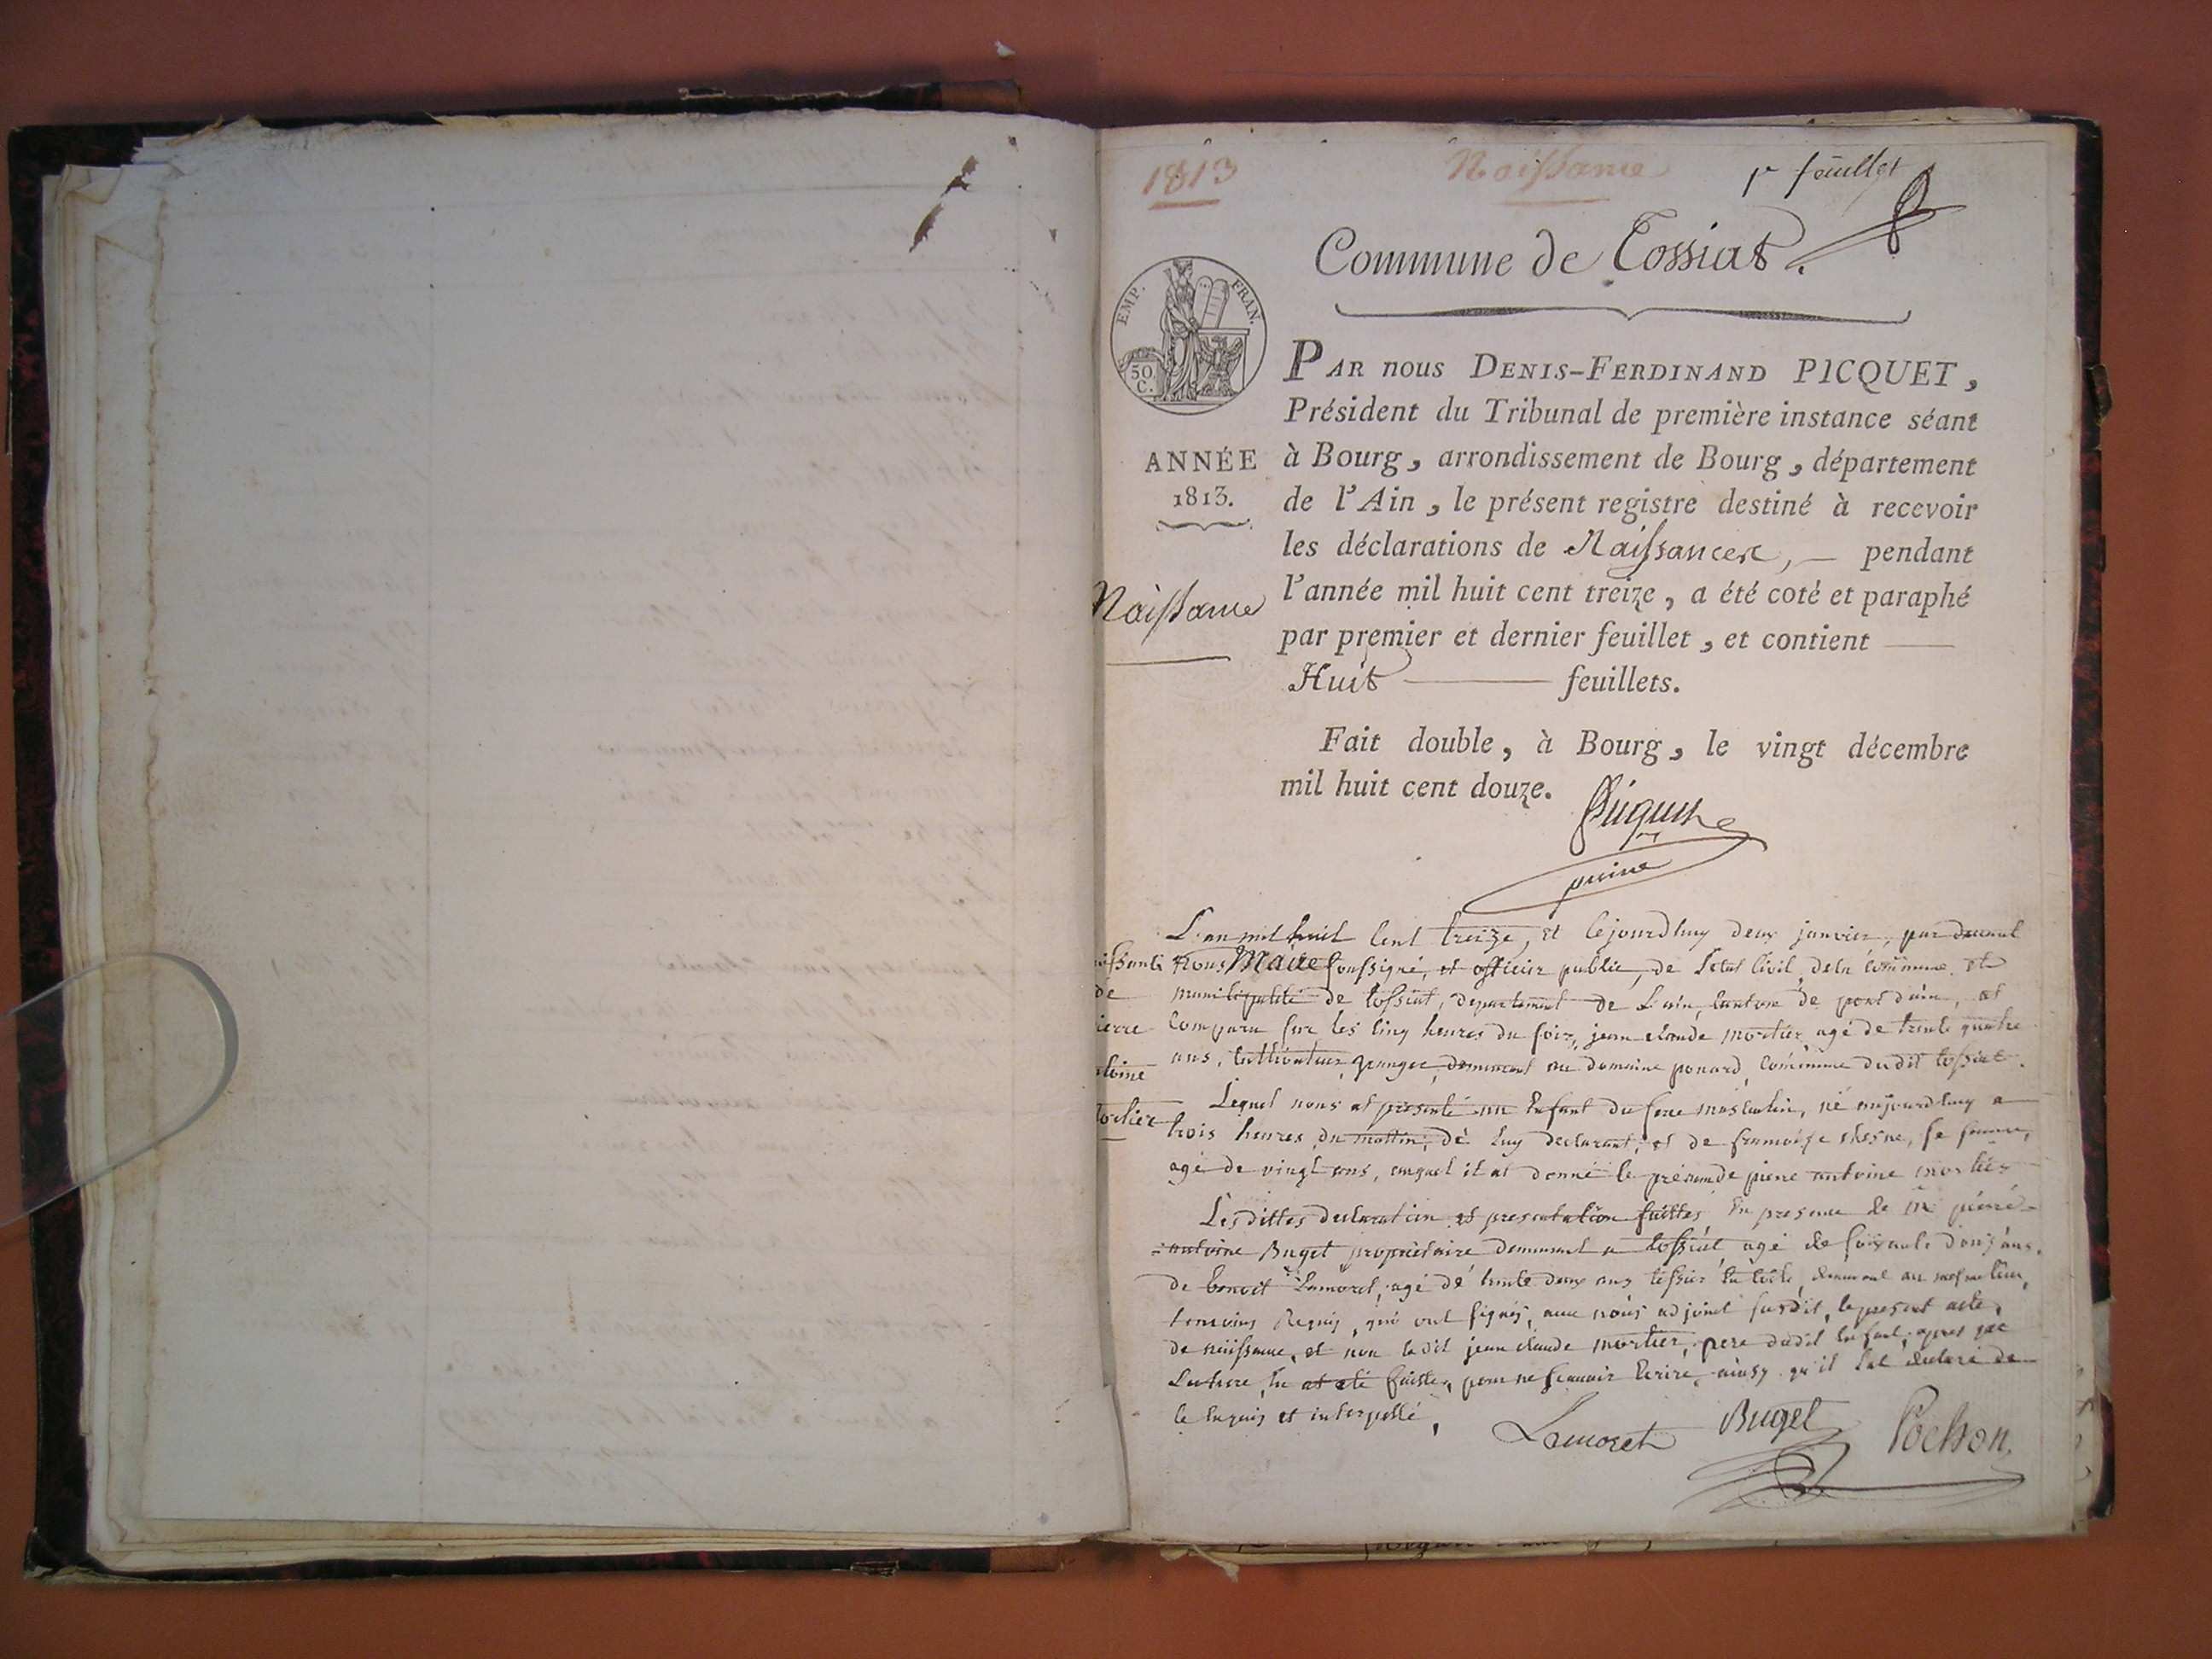 1813
Naissance
1r feuillet
Commune de Tossiat.
EMP. FRAN.
50.
C.
ANNÉE
1813.
Naissance
PAR nous DENIS-FERDINAND PICQUET,
Président du Tribunal de première instance séant
à Bourg, arrondissement de Bourg, département
de l'Ain, le présent registre destiné à recevoir
les déclarations de Naissances, — pendant
l'année mil huit cent treize, a été coté et paraphé
par premier et dernier feuillet, et contient —
Huit — feuillets.
Fait double, à Bourg, le vingt décembre
mil huit cent douze.
Picquet
L'an mil huit Cent treize, et Cejourdhuy deux janvier, par devant
Nous Maire soussigné, et officier public, de Letat Civil, dela commune et
municipalité de tossiat, departement de L'ain, Canton de pont dain, at
Comparu sur les Cinq heures du soir, jean claude mortier, agé de trente quatre
ans, Cultivateur granger, demeurant au domaine ponard, commune dudit tossiat.
Lequel nous at presenté un Enfant du sexe masculin, né aujourdhuy a
trois heures du mattin, de Luy declarant, et de francoise chesne, sa femme,
agé de vingt ans, auquel il at donné le prénom de pierre antoine mortier
Les dittes declaration et presentation faittes, En presence de Mr pierre=
=antoine Buget propriétaire demeurant a tossiat agé de soixante douze ans,
de benoit Lamoret, agé de trente deux ans tessier En toile, demeurant au meme lieu,
temoins Requis, qui ont signés, avec nous adjoint susdit, le present acte,
de naissance, et non ledit jean claude mortier, pere dudit Enfant, apres que
Lecture En at eté faitte, pour ne scavoir Ecrire, ainsy qu'il lat declaré de
le Enquis et interpellé,
issante
de
ierre
toine
ortier
Lamoret Buget Pochon